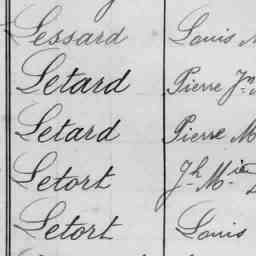 Lessard Louis
Letard Pierre Jn
Letard Pierre M
Letort Jh Mie
Letort Louis